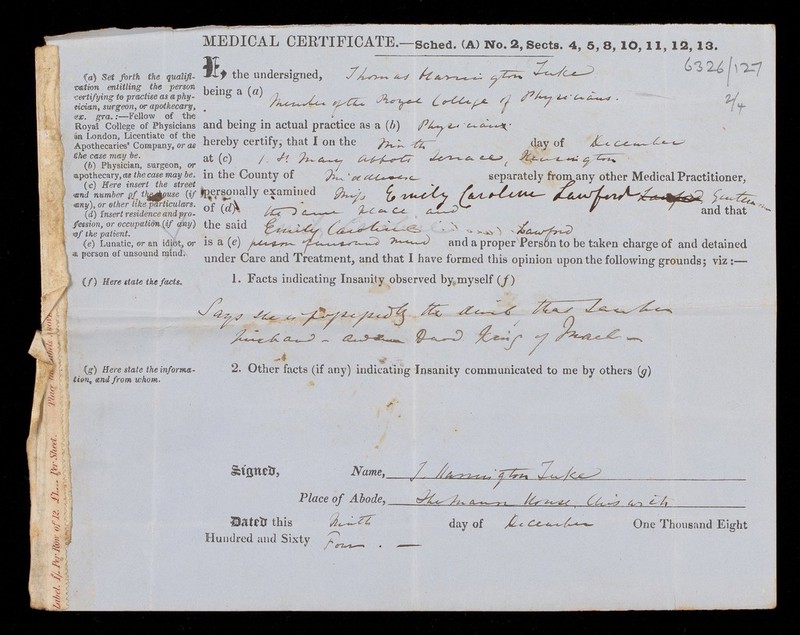 MEDICAL CERTIFICATE.—Sched. (A) No. 2, Sects. 4, 5, 8, 10, 11, 12, 13.
6326/127
2/4
I, the undersigned, Thomas Harrington Tuke
being a (a)
Member of the Royal College of Physicians.
and being in actual practice as a (b) Physician
hereby certify, that I on the Ninth day of December
at (c) 1. St Mary Abbots Terrace, Kensington
in the County of Middlesex separately from any other Medical Practitioner,
personally examined Miss Emily Caroline Lawford
of (d) the same place and and that
the said Emily Caroline Lawford
is a (e) person of unsound mind and a proper Person to be taken charge of and detained
under Care and Treatment, and that I have formed this opinion upon the following grounds; viz:—
1. Facts indicating Insanity observed by myself (f)
Says she is by the devil that
husband - David King of Israel -
2. Other facts (if any) indicating Insanity communicated to me by others (g)
Signed, Name, T. Harrington Tuke
Place of Abode, The Manor House. Chiswick
Dated this Ninth day of December One Thousand Eight
Hundred and Sixty Four. —
(a) Set forth the qualifi-
cation entitling the person
certifying to practise as a phy-
sician, surgeon, or apothecary,
ex. gra.:—Fellow of the
Royal College of Physicians
in London, Licentiate of the
Apothecaries' Company, or as
the case may be.
(b) Physician, surgeon, or
apothecary, as the case may be.
(c) Here insert the street
and number of the house (if
any), or other like particulars.
(d) Insert residence and pro-
fession, or occupation (if any)
of the patient.
(e) Lunatic, or an idiot, or
a person of unsound mind.
(f) Here state the facts.
(g) Here state the informa-
tion, and from whom.
Per Row of 12. Per Sheet.